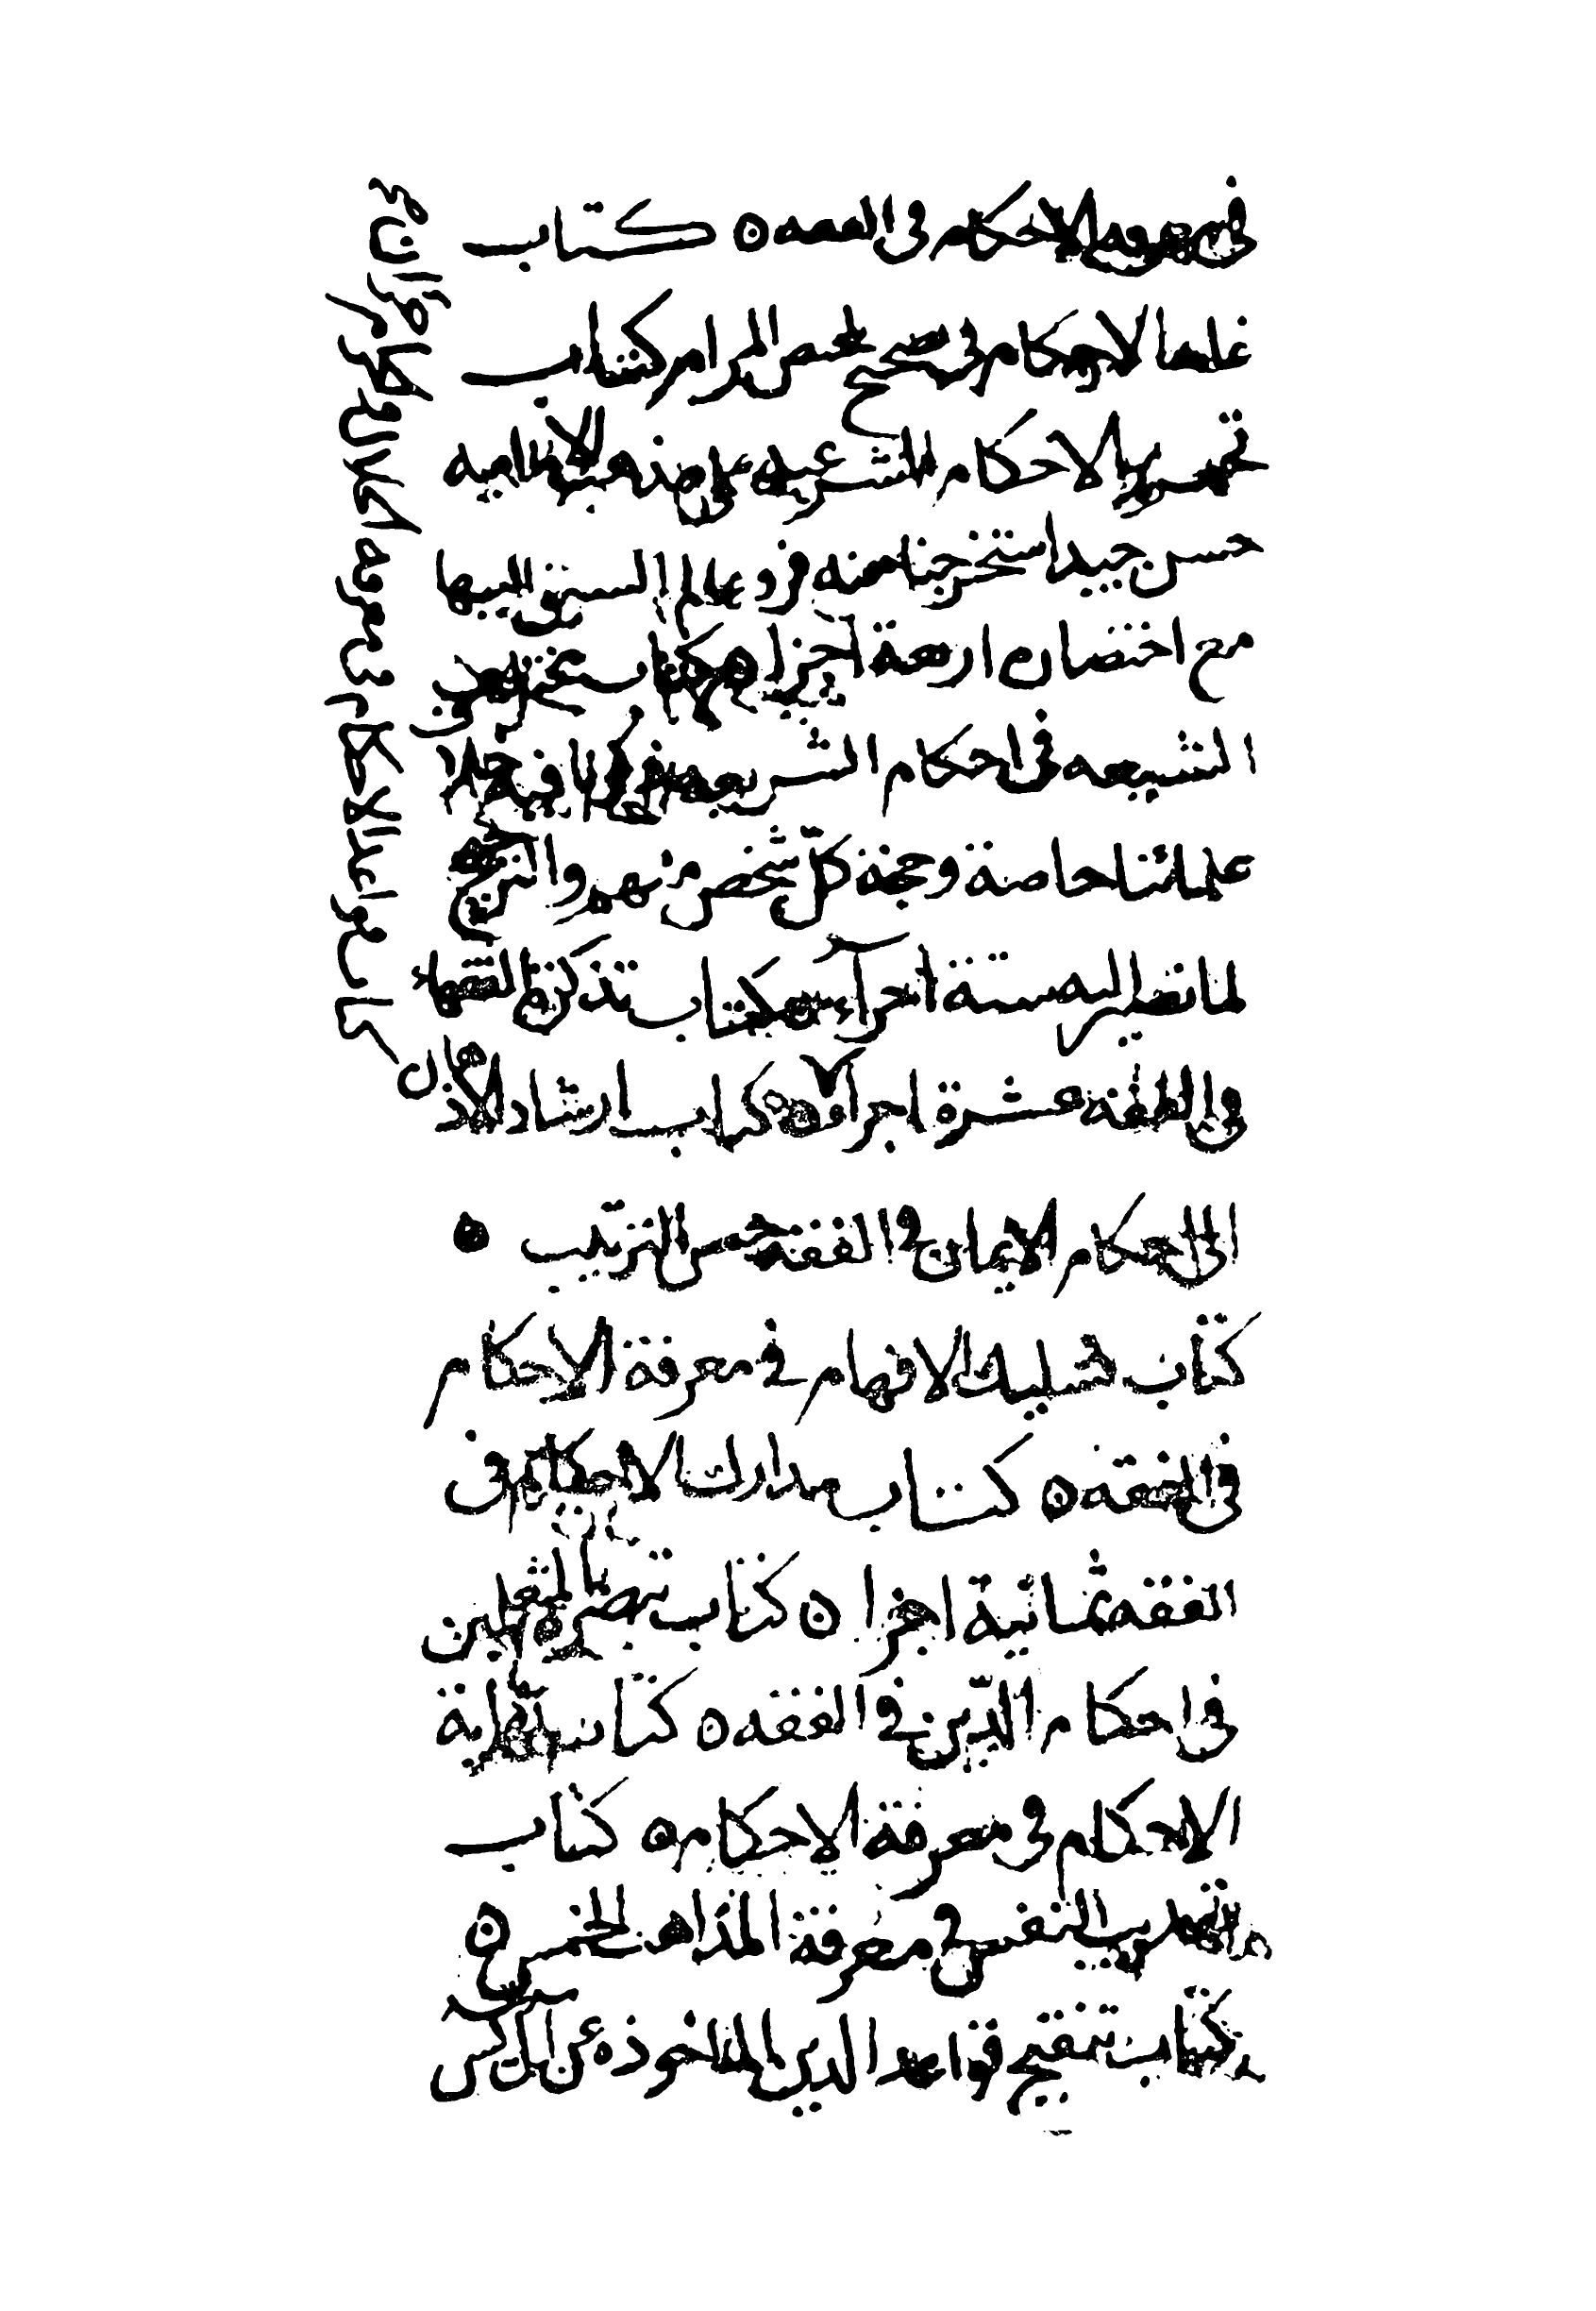 في معرفة الاحكام في الفقه ه كتاب
غاية الاحكام في تصحيح تلخيص المرام كتاب
تحرير الاحكام الشرعيه على مذهب الاماميه
حسن جيد استخرجنا منه فروعا لم السبق اليها
مع اختصاره اربعة اجزا ه كتاب مختلف
الشيعه في احكام الشريعه ذكرنا فيه خلاف
علمائنا خاصة وحجة كل شخص منهم والترجيح
لما نصير اليه ستة اجزآء ه كتاب تذكرة الفقهاء
في الفقه عشرة اجزآء ه كتاب ارشاد الاذهان
الى احكام الايمان في الفقه حسن الترتيب ه
كتاب تسليك الافهام في معرفة الاحكام
في الفقه ه كتاب مدارك الاحكام في
الفقه ثمانية اجزا ه كتاب تبصرة المتعلمين
في احكام الدّين في الفقه ه كتاب نهاية
الاحكام في معرفة الاحكام ه كتاب
تهذيب النفس في معرفة المذاهب الخمس ه
كتاب تنقيح قواعد الدين الماخوذه عن آل يس